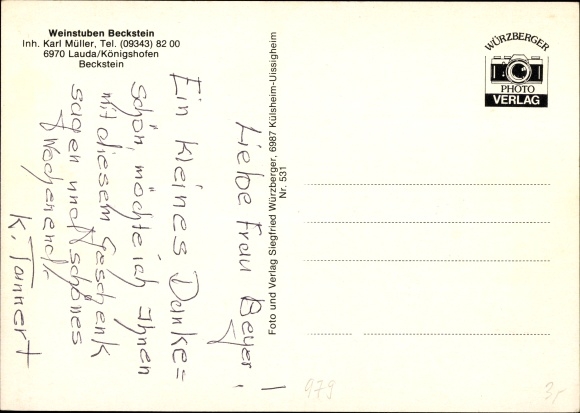 Weinstuben Beckstein
Inh. Karl Müller, Tel. (09343) 82 00
6970 Lauda/Königshofen
Beckstein
Liebe Frau Beyer!
Ein kleines Danke=
schön, möchte ich Ihnen
mit diesem Geschenk
sagen und schönes
Wochenende
K. Tannert
Foto und Verlag Siegfried Würzberger, 6987 Külsheim-Uissigheim
Nr. 531
WÜRZBERGER
PHOTO
VERLAG
979
3,-